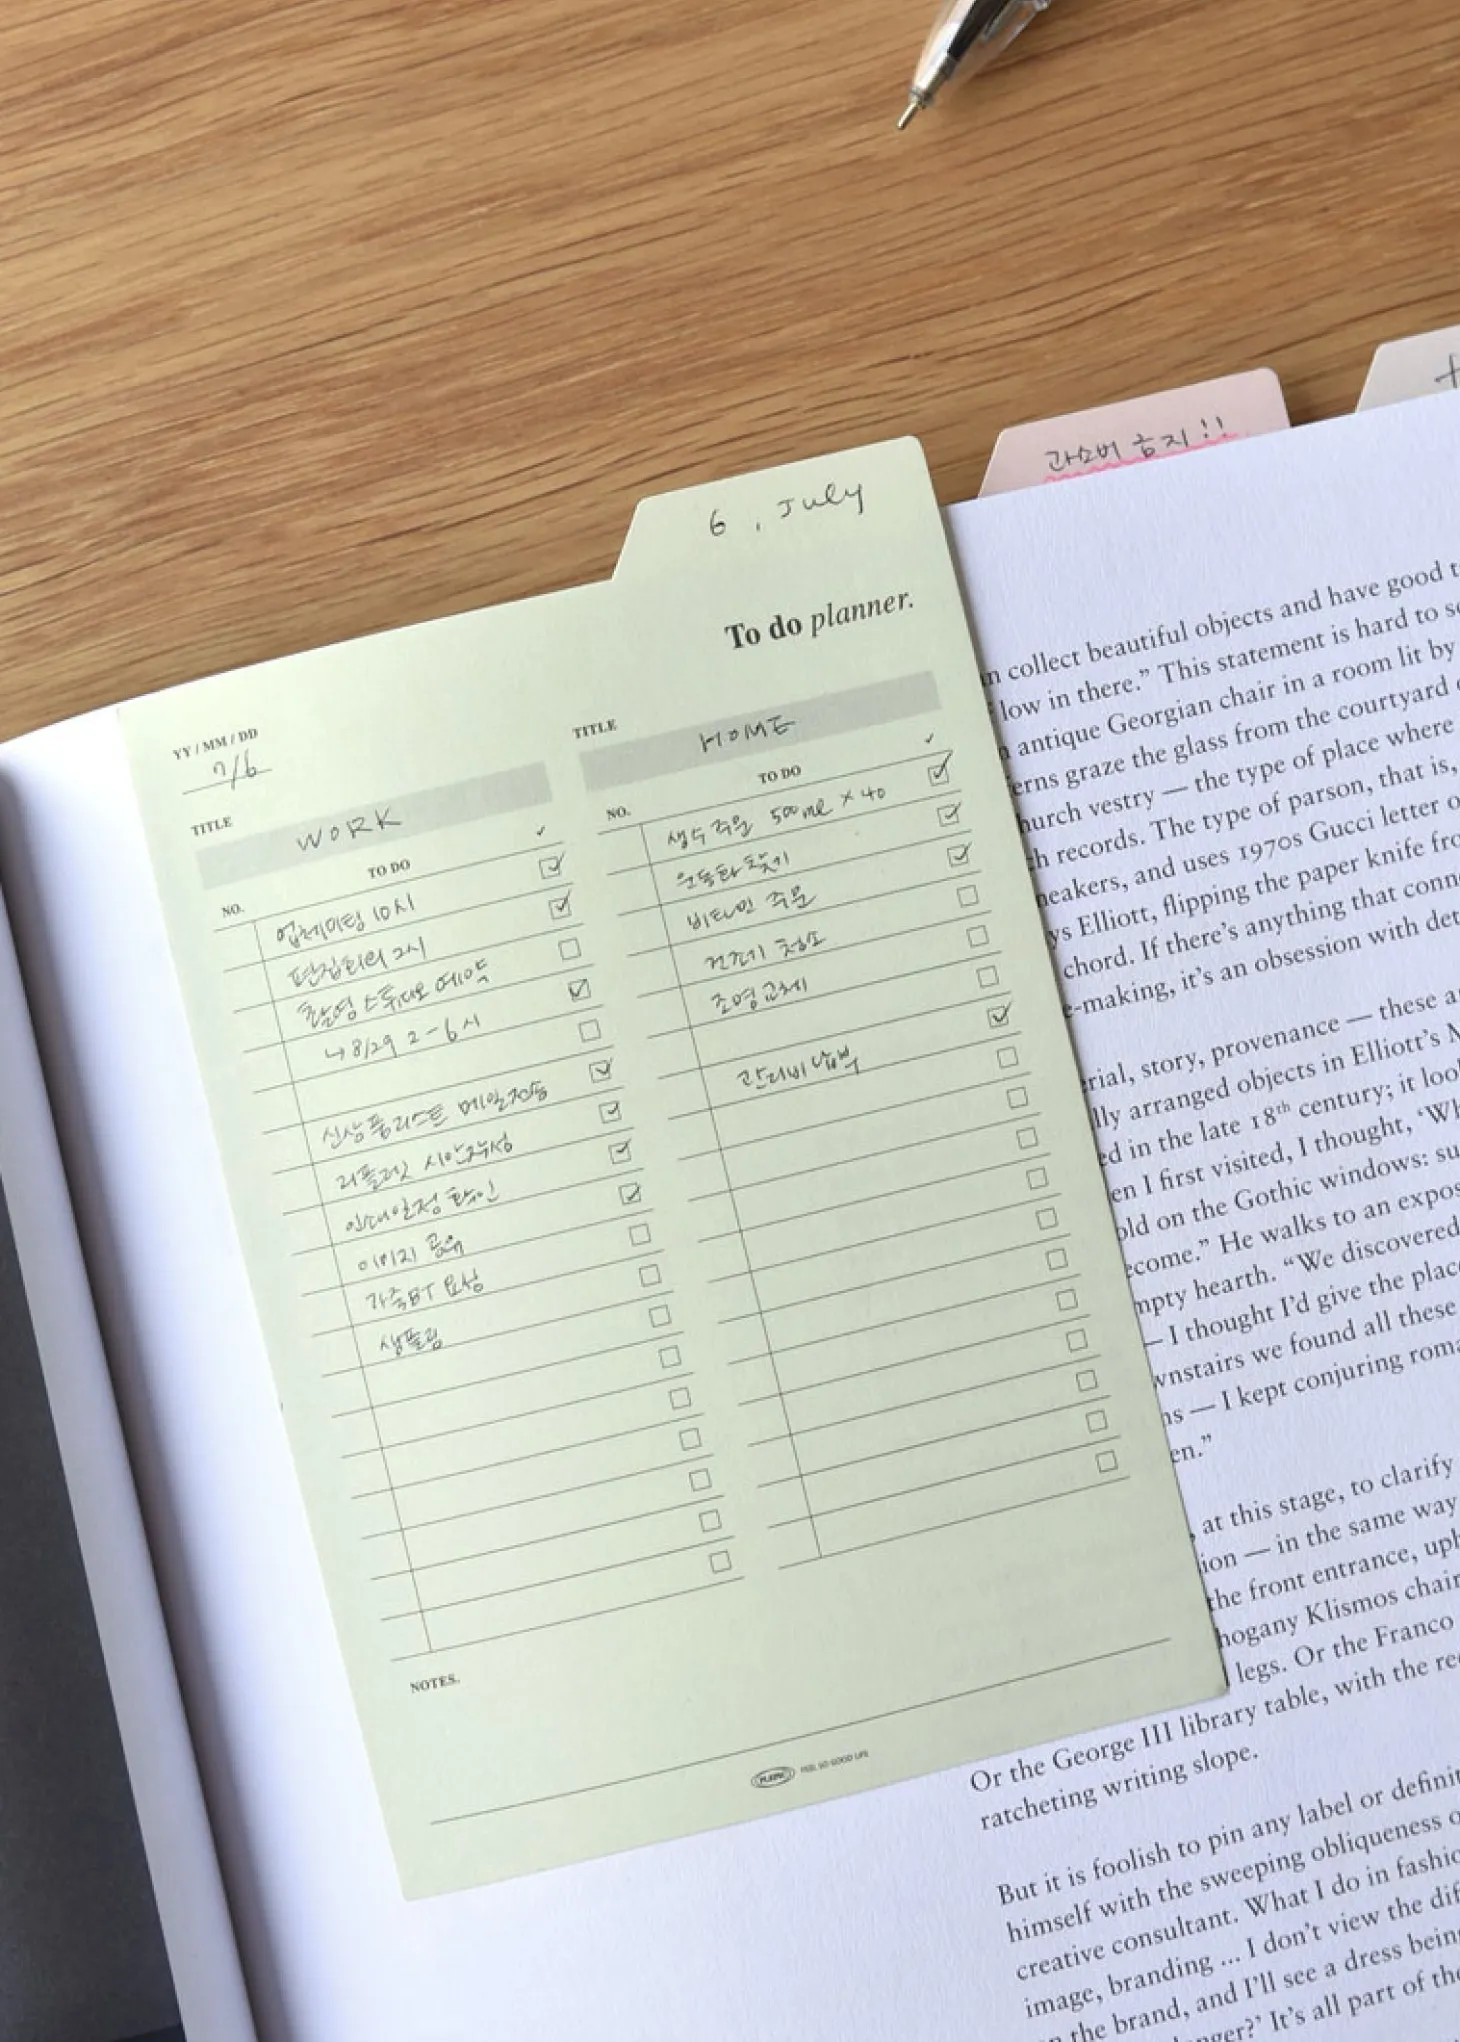 과소비 금지!!
6, July
To do planner.
YY / MM / DD
7/6
TITLE
WORK
NO.
TO DO
✓
업체미팅 10시
편집회의 2시
촬영 스튜디오 예약
↳ 8/29 2-6시
신상품리스트 메일전송
리플렛 시안작성
인대일정 확인
이미지 공유
가죽BT 요청
샘플링
TITLE
HOME
NO.
TO DO
✓
생수 주문 500ml × 40
운동화 찾기
비타민 주문
건조기 청소
조명교체
관리비 납부
NOTES.
PLEPIC
FEEL SO GOOD LIFE
n collect beautiful objects and have good
low in there.” This statement is hard to
antique Georgian chair in a room lit by
erns graze the glass from the courtyard
hurch vestry — the type of place where
h records. The type of parson, that is,
neakers, and uses 1970s Gucci letter
ys Elliott, flipping the paper knife
chord. If there’s anything that
e-making, it’s an obsession with
rial, story, provenance — these
lly arranged objects in Elliott’s
ed in the late 18th century; it
en I first visited, I thought,
old on the Gothic windows:
ecome.” He walks to an
mpty hearth. “We discovered
— I thought I’d give the
wnstairs we found all these
ns — I kept conjuring
en.”
, at this stage, to clarify
ion — in the same way
the front entrance,
hogany Klismos
legs. Or the Franco
Or the George III library table, with the
ratcheting writing slope.
But it is foolish to pin any label or
himself with the sweeping obliqueness
creative consultant. What I do in
image, branding ... I don’t view the
the brand, and I’ll see a dress
It’s all part of